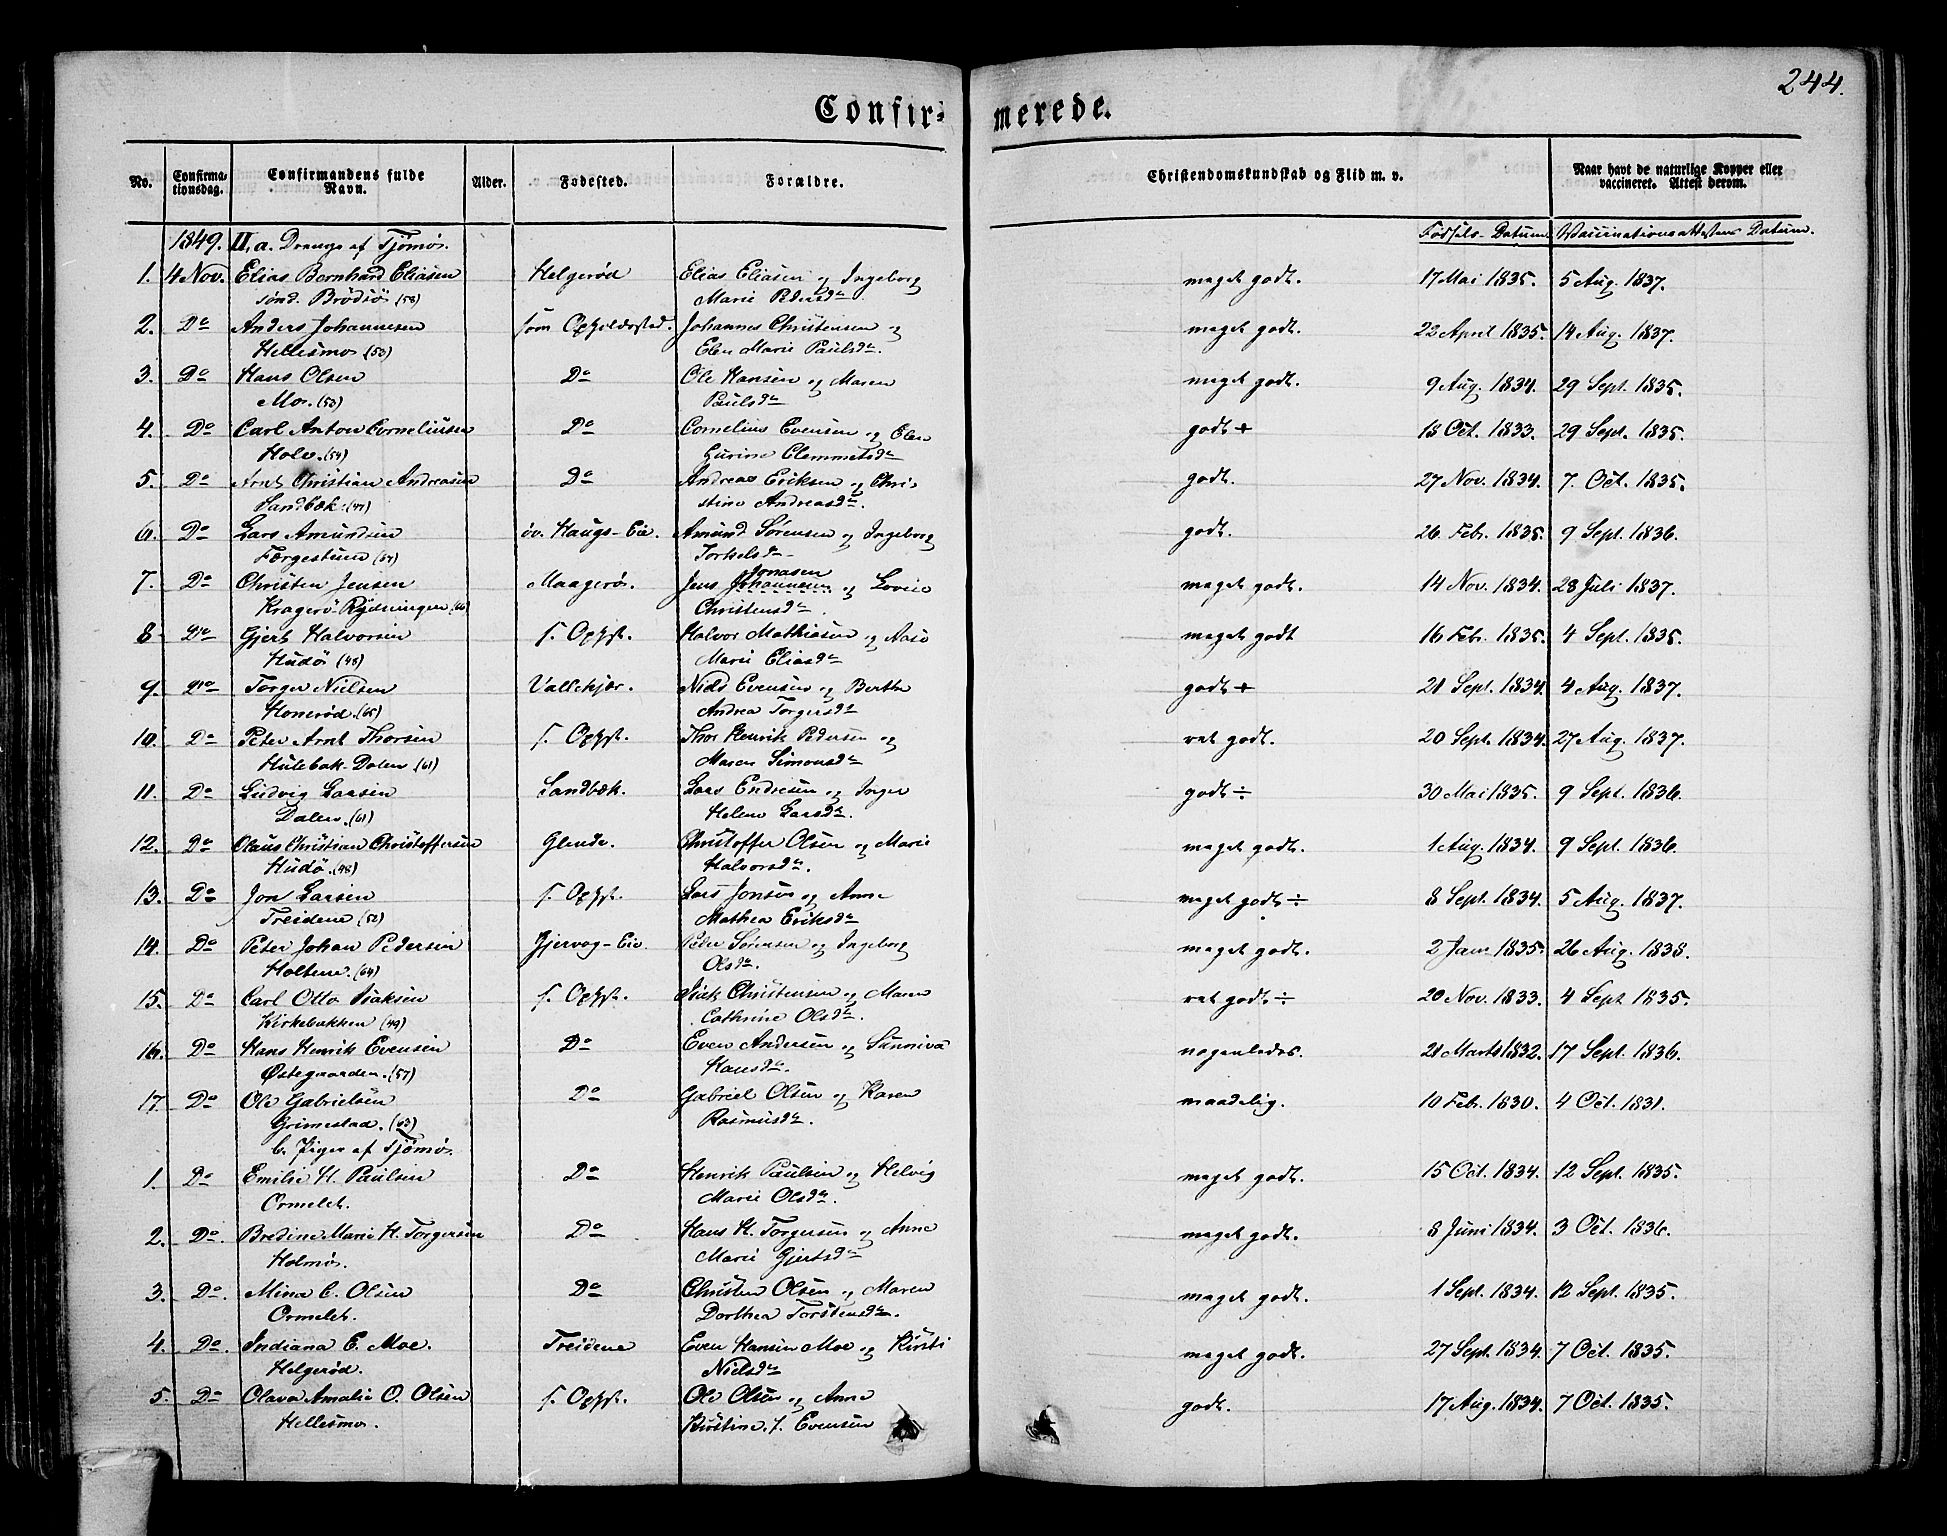 244.
Confir- merede.
No. Confirma-tionsdag. Confirmandens fulde Navn. Alder. Fødested. Forældre. Christendomskundskab og Flid m. v. Naar havt de naturlige Kopper eller vaccineret. Attest derom.
1849. II, a. Drenge af Tjömö. Födsels-Datum Vaccinationsattestens Datum.
1. 4 Nov. Elias Bernhard Eliasen Helgeröd Elias Eliasen og Ingeborg maget godt. 17 Mai 1835. 5 Aug. 1837.
sönd. Brödsö (58) Marie Pedersdr
2. Do Anders Johannesen som Opholdssted. Johannes Christensen og maget godt. 22 April 1835. 14 Aug. 1837.
Hellesmo. (53) Elen Marie Paulsdr.
3. Do Hans Olsen Do Ole Hansen og Maren maget godt. 9 Aug. 1834. 29 Sept. 1835.
Mo. (53) Paulsdr
4. Do Carl Anton Corneliusen Do Cornelius Evensen og Elen godt + 18 Oct. 1833. 29 Sept. 1835.
Holv. (54) Gurine Clemmetsdr
5. Do Arnt Christian Andreasen Do Andreas Eriksen og Chri- godt. 27 Nov. 1834. 7. Oct. 1835.
Sandbæk. (47) stine Andreasdr.
6. Do Lars Amundsen öv. Haugs-Eie. Amund Sörensen og Ingeborg godt. 26 Febr. 1835. 9 Sept. 1836.
Færgestuen (64) Torkelsdr
Jonasen
7. Do Christen Jensen Maagerö. Jens Johannesen og Lovise maget godt. 14 Nov. 1834. 28 Juli 1837.
Kragerö-Rydningen (66) Christensdr.
8 Do Gjert Halvorsen s. Ophst. Halvor Mathiasen og Aase maget godt 16 Febr. 1835. 4 Sept. 1835.
Hudö (48) Marie Eliasdr
9. Do Torger Nielsen Vallekjær. Niels Evensen og Berthe godt + 21 Sept. 1834. 4 Aug. 1837.
Honeröd. (65) Andrea Torgersdr
10. Do Peter Arnt Thorsen s. Ophst. Thor Henrik Pedersen og ret godt. 20 Sept. 1834. 27 Aug. 1837.
Hulebak-Dalen. (61) Maren Simonsdr
11. Do Ludvig Larsen Sandbæk. Lars Endresen og Inger godt ÷ 30 Mai 1835. 9 Sept. 1836.
Dalen. (61) Helene Larsdr.
12. Do Olaus Christian Christoffersen Glende. Christoffer Olsen og Marie maget godt. 1 Aug. 1834. 9 Sept. 1836.
Hudö. (48) Halvorsdr.
13. Do Jon Larsen s. Ophst. Lars Jonsen og Anne maget godt ÷ 8 Sept. 1834. 5 Aug. 1837.
Treidene (52) Mathea Eriksdr
14. Do Peter Johan Pedersen Gjervog-Eie. Peter Sörensen og Ingeborg maget godt. 2 Jan. 1835. 26 Aug. 1838.
Holtene. (64) Olsdr.
15. Do Carl Otto Isaksen s. Ophst. Isak Christensen og Maren ret godt ÷ 20 Nov. 1833. 4 Sept 1835.
Kirkebakken (49) Cathrine Olsdr.
16. Do Hans Henrik Evensen Do Even Andersen og Sunniva nogenledes. 21 Marts 1832. 17 Sept. 1836.
Østegaarden. (57) Hansdr.
17. Do Ole Gabrielsen Do Gabriel Olsen og Karen maadelig. 10 Febr. 1830. 4 Oct. 1831.
Grimestad. (63) Rasmusdr.
b. Piger af Tjömö.
1. Do Emilie H. Paulsen Do Henrik Paulsen og Helvig maget godt. 15 Oct. 1834. 12 Sept. 1835.
Ormelet. Marie Olsdr.
2. Do. Bredine Marie H. Torgersen Do Hans H. Torgersen og Anne maget godt. 8 Juni 1834. 3 Oct. 1836.
Holmö. Marie Gjertsdr
3. Do. Mina C. Olsen Do Christen Olsen og Maren maget godt. 1 Sept. 1834. 12 Sept. 1835.
Ormelet. Dorthea Torstensdr.
4. Do. Indiana E. Moe. Treidene Even Hansen Moe og Kirsti maget godt. 27 Sept. 1834. 7 Oct. 1835.
Helgeröd. Nielsdr
5. Do Olava Amalie O. Olsen s. Ophst. Ole Olsen og Anne godt. 17 Aug. 1834. 7 Oct. 1835.
Hellesmo. Kirstine f. Evensen